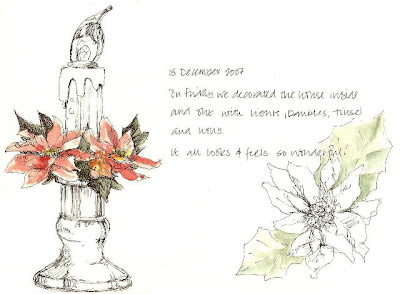 15 December 2007
On Friday we decorated the house inside
and out with lights, baubles, tinsel
and holly.
It all looks & feels so wonderful.